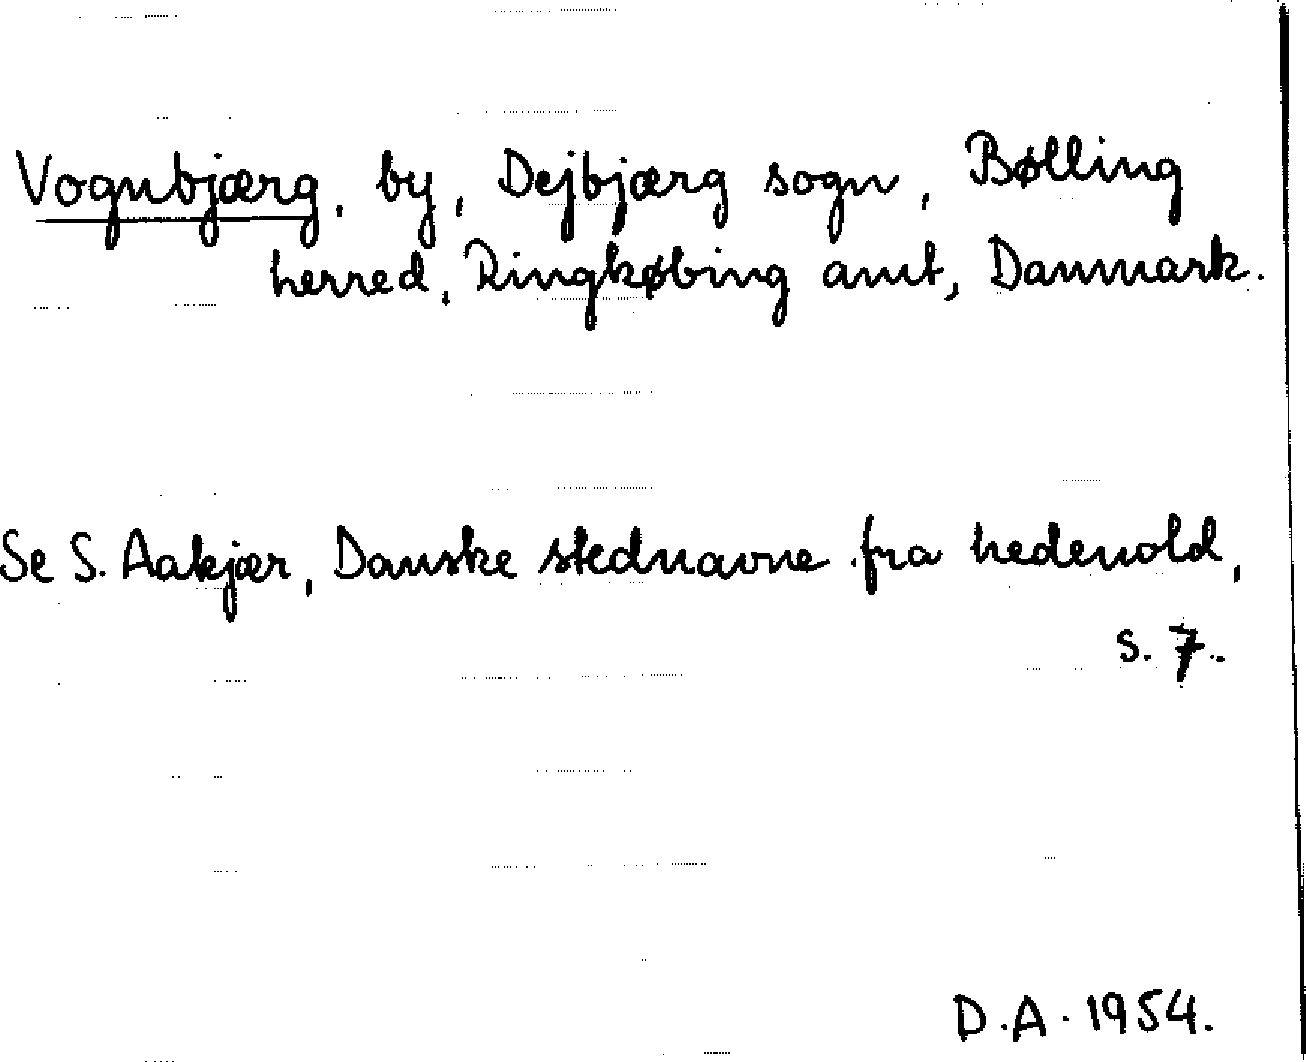 Vognbjærg, by, Dejbjærg sogn, Bølling
herred, Ringkøbing amt, Danmark.
Se S. Aakjær, Danske stednavne fra hedenold,
s. 7.
D.A. 1954.